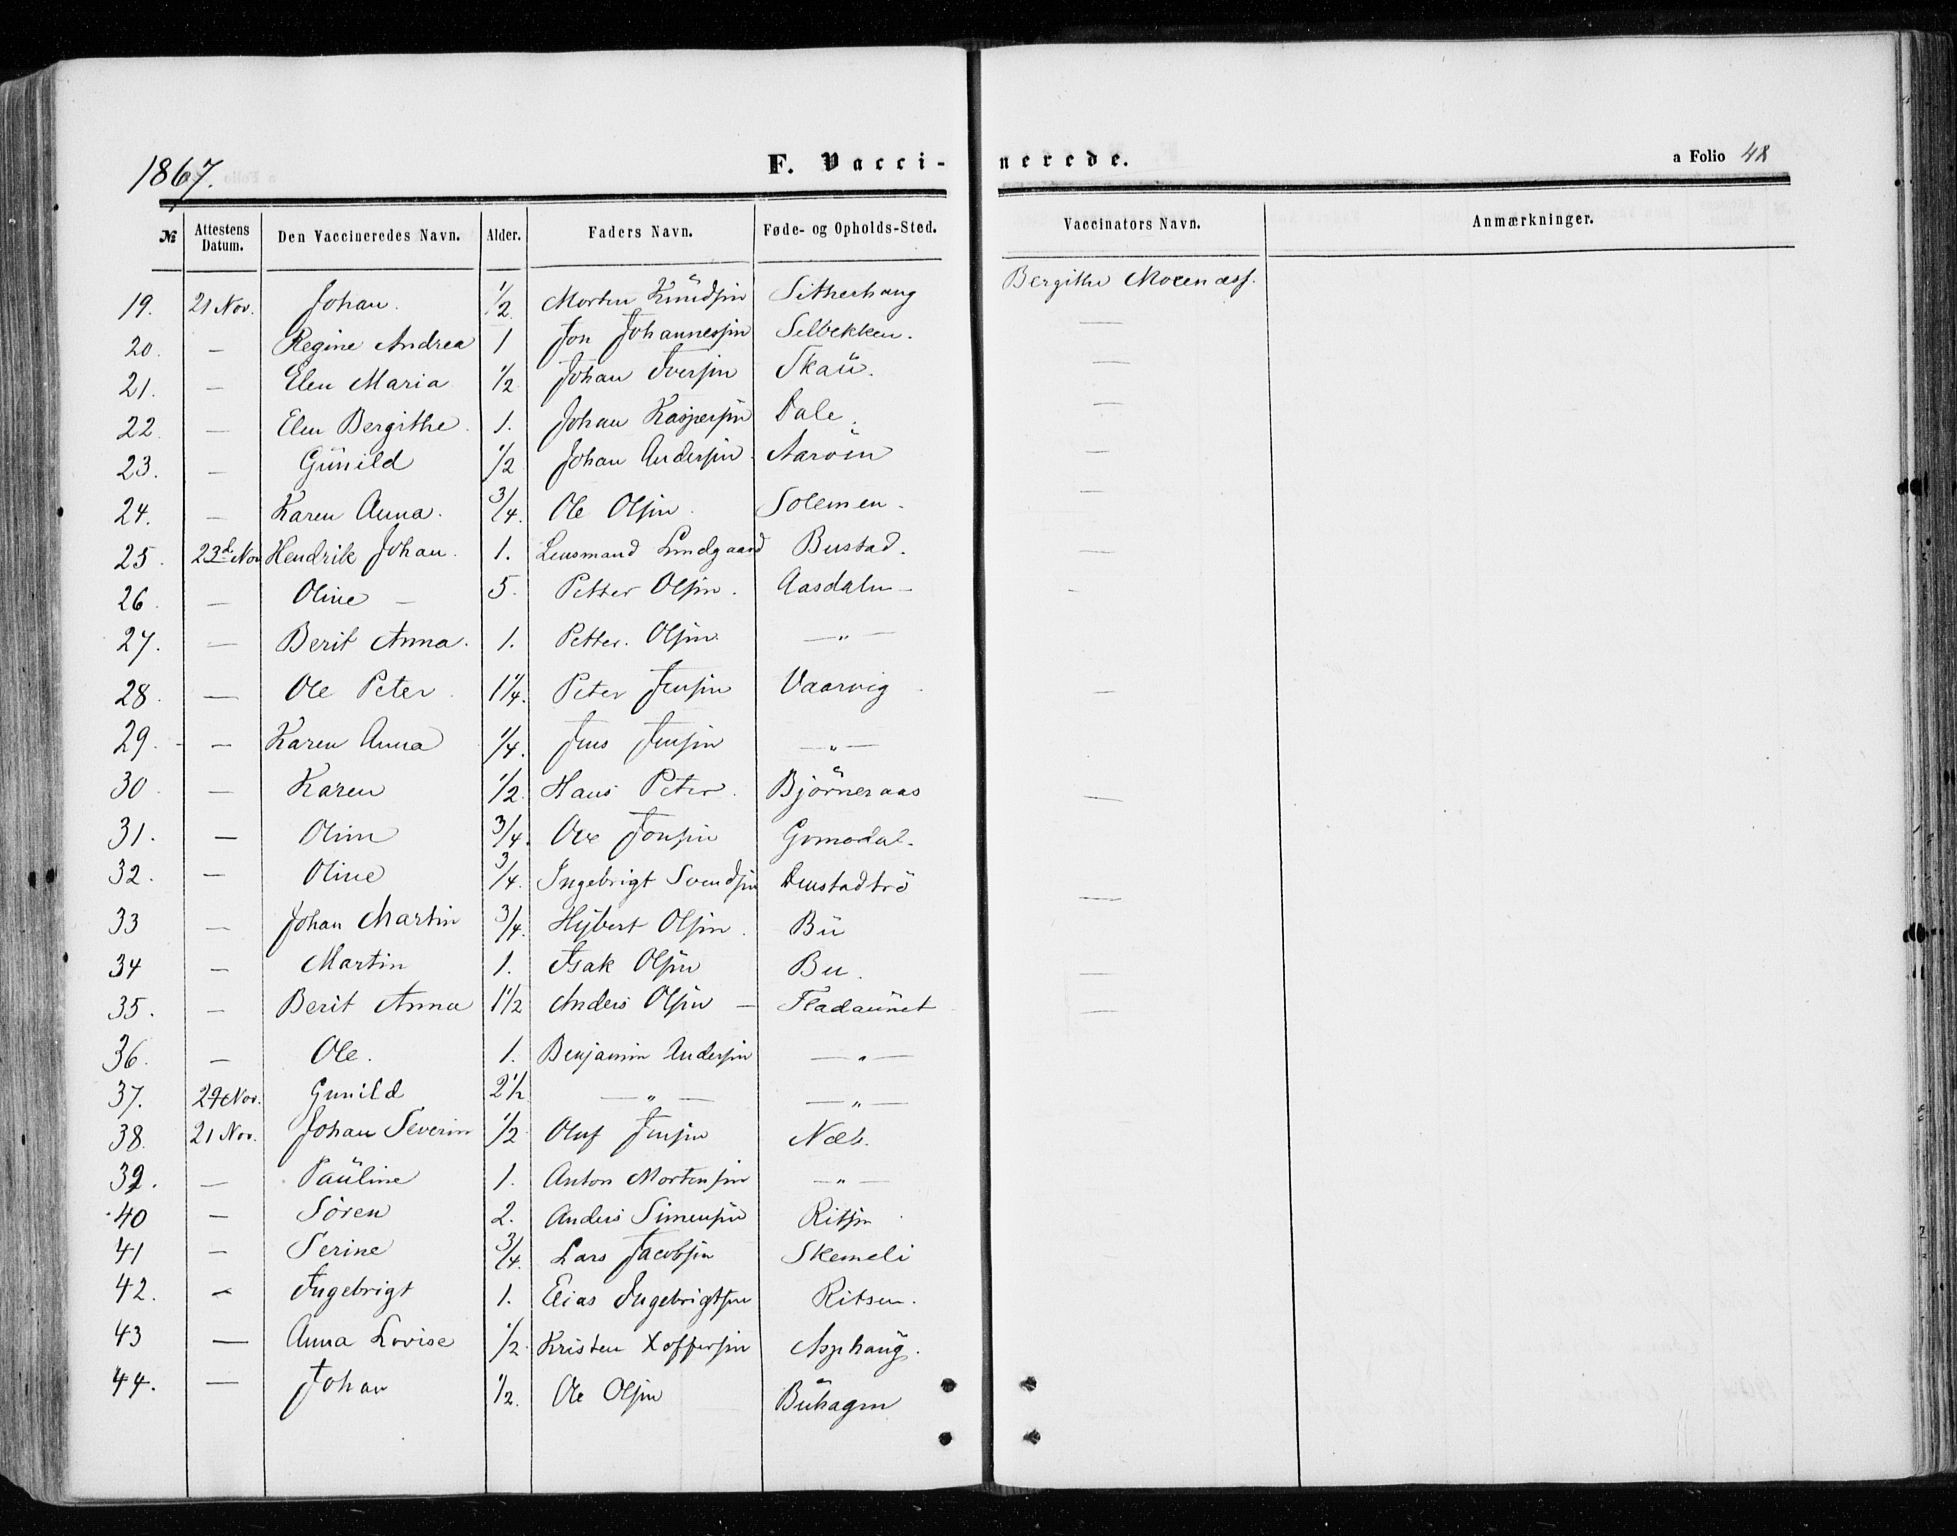 1867.
F. Vaccinerede.
a Folio 48
№ Attestens Datum. Den Vaccineredes Navn. Alder. Faders Navn. Føde- og Opholds-Sted. Vaccinators Navn. Anmærkninger.
19. 21 Nov. Johan. 1/2 Morten Knudsen Sitherhaug Bergithe
20. — Regine Andrea 1 Jon Johannessen Selbekken. —
21. — Elen Maria 1/2 Johan Iversen Skaŭ. —
22 — Elen Bergithe. 1. Johan Kaspersen Dale. —
23. — Gŭnild 1/2 Johan Andersen Aarøen —
24. — Karen Anna. 3/4. Ole Olsen. Solemen. —
25. 23d Nov Hendrik Johan. 1. Lensmand Lindgaard Bustad.
26. — Oline — 5. Petter Olsen. Aasdalen — -
27. — Berit Anna. 1. Petter. Olsen — " —
28 — Ole Peter. 1 1/4. Peter Jensen Vaarvig —
29. — Karen Anna 1/4. Jens Jensen — " —
30 — Karen 1/2. Hans Peter. Bjørneraas —
31. — Oline 3/4. Ole Jonsen
32. — Oline 3/4. Ingebrigt Svendsen
33 — Johan Martin 3/4. Olsen. Bŭ —
34 — Martin 1. Isak Olsen Bu. —
35. — Berit Anna 1 1/2 Anders Olsen — Fladaŭnet —
36. — Ole. 1. Benjamin Andersen — " —
37. 29 Nov. Gunild 2 1/2 — " — — " —
38. 21 Nov. Johan Severin 1/2 Oluf Jensen
39. — Paŭline 1. Anton Mortensen — " —
40 — Søren 2. Anders Simensen Ritsen
41 — Serine 3/4. Lars Jacobsen Skemeli
42. — Ingebrigt 1. Elias Ingebrigtsen Ritsen.
43 — Anna Lovise 1/2. Kristen Xoffersen Asphaŭg.
44. — Johan 1/2. Ole Olsen Bŭhagen